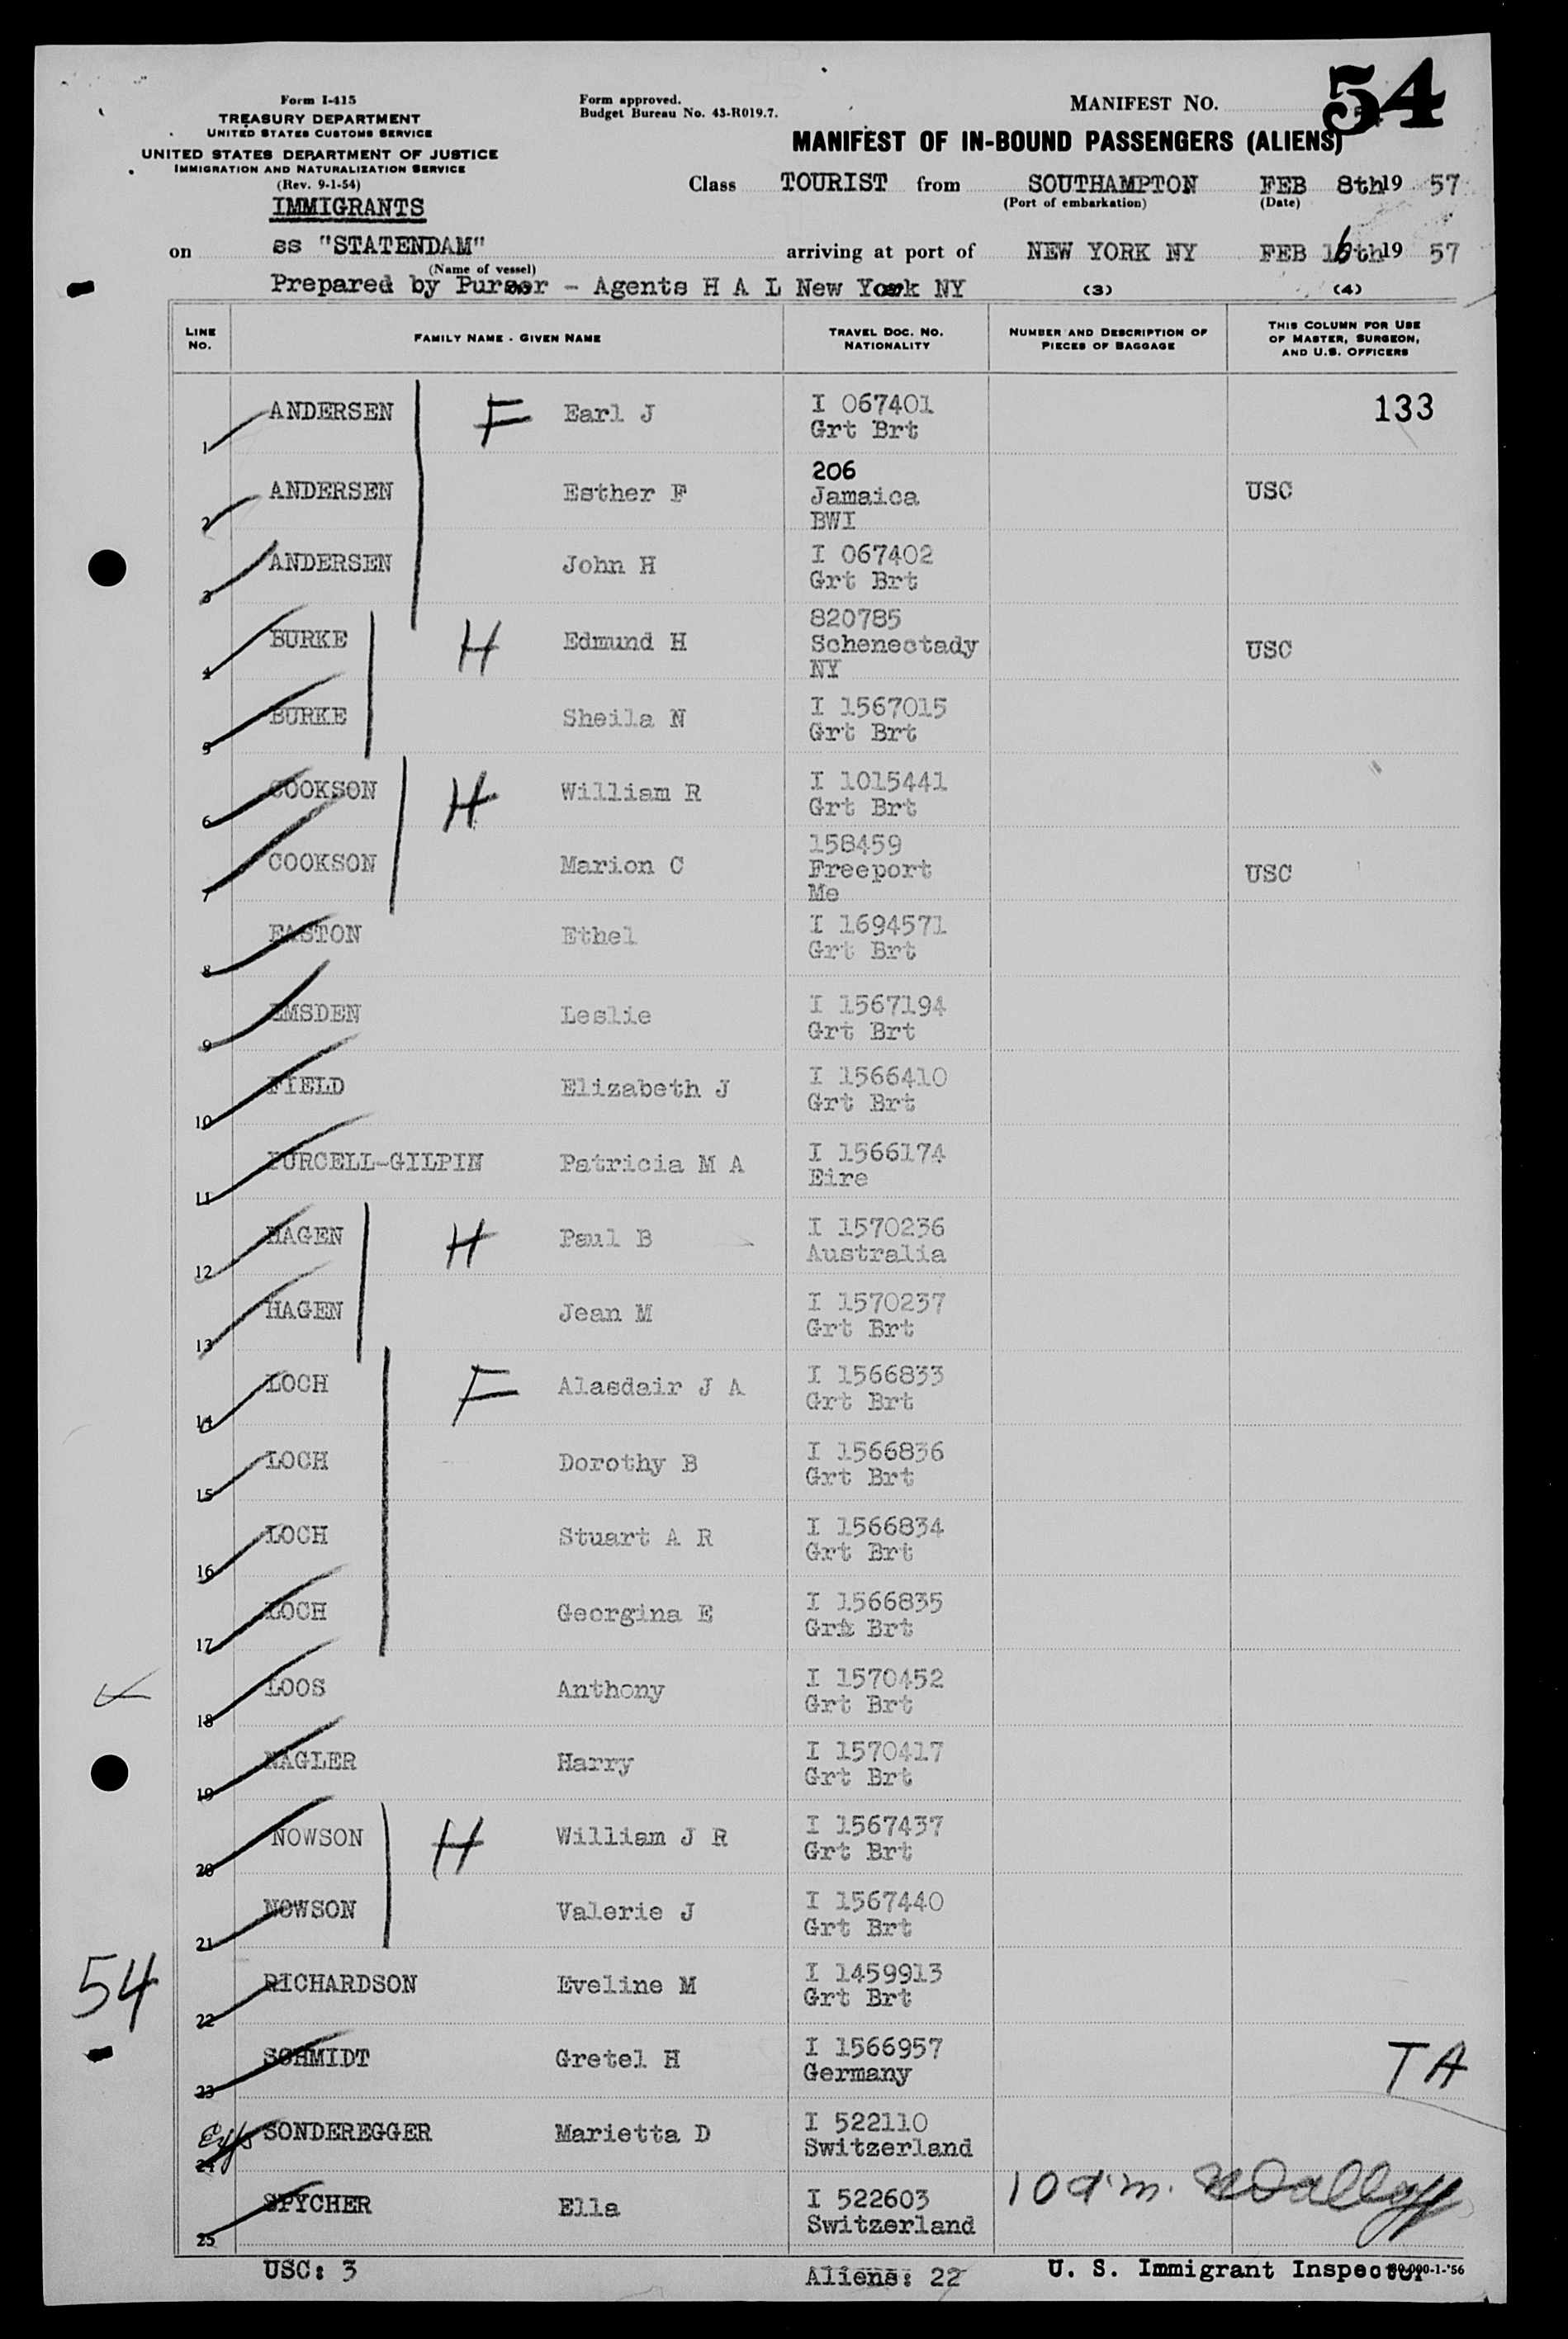 54
Form I-415
TREASURY DEPARTMENT
UNITED STATES CUSTOMS SERVICE
UNITED STATES DEPARTMENT OF JUSTICE
IMMIGRATION AND NATURALIZATION SERVICE
(Rev. 9-1-54)
IMMIGRANTS
Form approved.
Budget Bureau No. 43-R019.7.
MANIFEST NO.
MANIFEST OF IN-BOUND PASSENGERS (ALIENS)
Class TOURIST from SOUTHAMPTON FEB 8th 19 57
(Port of embarkation) (Date)
on ss "STATENDAM" arriving at port of NEW YORK NY FEB 16th 19 57
(Name of vessel)
Prepared by Purser - Agents H A L New York NY (3) (4)
LINE NO. FAMILY NAME - GIVEN NAME TRAVEL DOC. NO. NATIONALITY NUMBER AND DESCRIPTION OF PIECES OF BAGGAGE THIS COLUMN FOR USE OF MASTER, SURGEON, AND U.S. OFFICERS
1 ANDERSEN F Earl J I 067401 Grt Brt 133
2 ANDERSEN Esther F 206 Jamaica BWI USC
3 ANDERSEN John H I 067402 Grt Brt
4 BURKE H Edmund H 820785 Schenectady NY USC
5 BURKE Sheila N I 1567015 Grt Brt
6 COOKSON H William R I 1015441 Grt Brt
7 COOKSON Marion C 158459 Freeport Me USC
8 EASTON Ethel I 1694571 Grt Brt
9 EMSDEN Leslie I 1567194 Grt Brt
10 FIELD Elizabeth J I 1566410 Grt Brt
11 PURCELL-GILPIN Patricia M A I 1566174 Eire
12 HAGEN H Paul B I 1570236 Australia
13 HAGEN Jean M I 1570237 Grt Brt
14 LOCH F Alasdair J A I 1566833 Grt Brt
15 LOCH Dorothy B I 1566836 Grt Brt
16 LOCH Stuart A R I 1566834 Grt Brt
17 LOCH Georgina E I 1566835 Grt Brt
18 LOOS Anthony I 1570452 Grt Brt
19 NAGLER Harry I 1570417 Grt Brt
20 NOWSON H William J R I 1567437 Grt Brt
21 NOWSON Valerie J I 1567440 Grt Brt
54
22 RICHARDSON Eveline M I 1459913 Grt Brt
23 SCHMIDT Gretel H I 1566957 Germany TA
24 SONDEREGGER Marietta D I 522110 Switzerland
25 SPYCHER Ella I 522603 Switzerland 10 a.m.
USC: 3 Aliens: 22 U. S. Immigrant Inspector